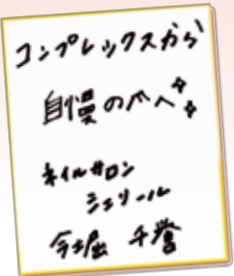 コンプレックスから
自慢の爪へ
ネイルサロン
シェリール
今堀 千誉